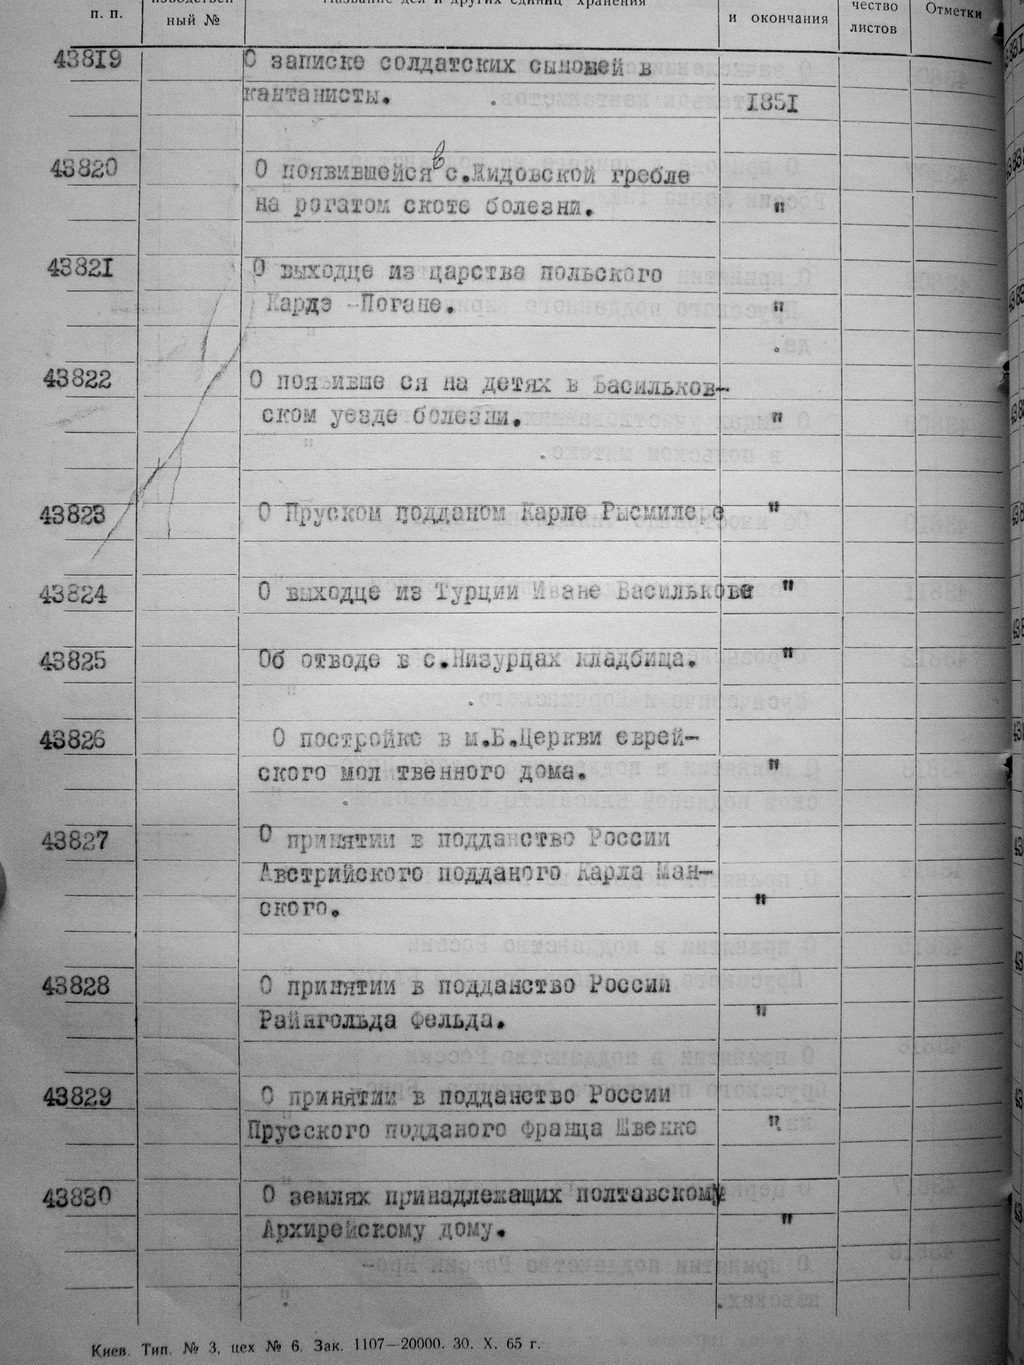 п. п.
ный №
Название дел и других единиц хранения
и окончания
чество
листов
Отметки
43819 О записке солдатских сыновей в
кантанисты. 1851
43820 О появившейся в с.Жидовской гребле
на рогатом скоте болезни. "
43821 О выходце из царства польского
Кардэ -Погане. "
43822 О появивше ся на детях в Васильков-
ском уезде болезни. "
43823 О Пруском подданом Карле Рысмилере "
43824 О выходце из Турции Иване Василькове "
43825 Об отводе в с.Низурцах кладбища. "
43826 О постройке в м.Б.Церкви еврей-
ского мол твенного дома. "
43827 О принятии в подданство России
Австрийского подданого Карла Ман-
ского. "
43828 О принятии в подданство России
Райнгольда Фельда. "
43829 О принятии в подданство России
Прусского подданого Франца Швенке "
43830 О землях принадлежащих полтавскому
Архирейскому дому. "
Киев. Тип. № 3, цех № 6. Зак. 1107—20000. 30. X. 65 г.